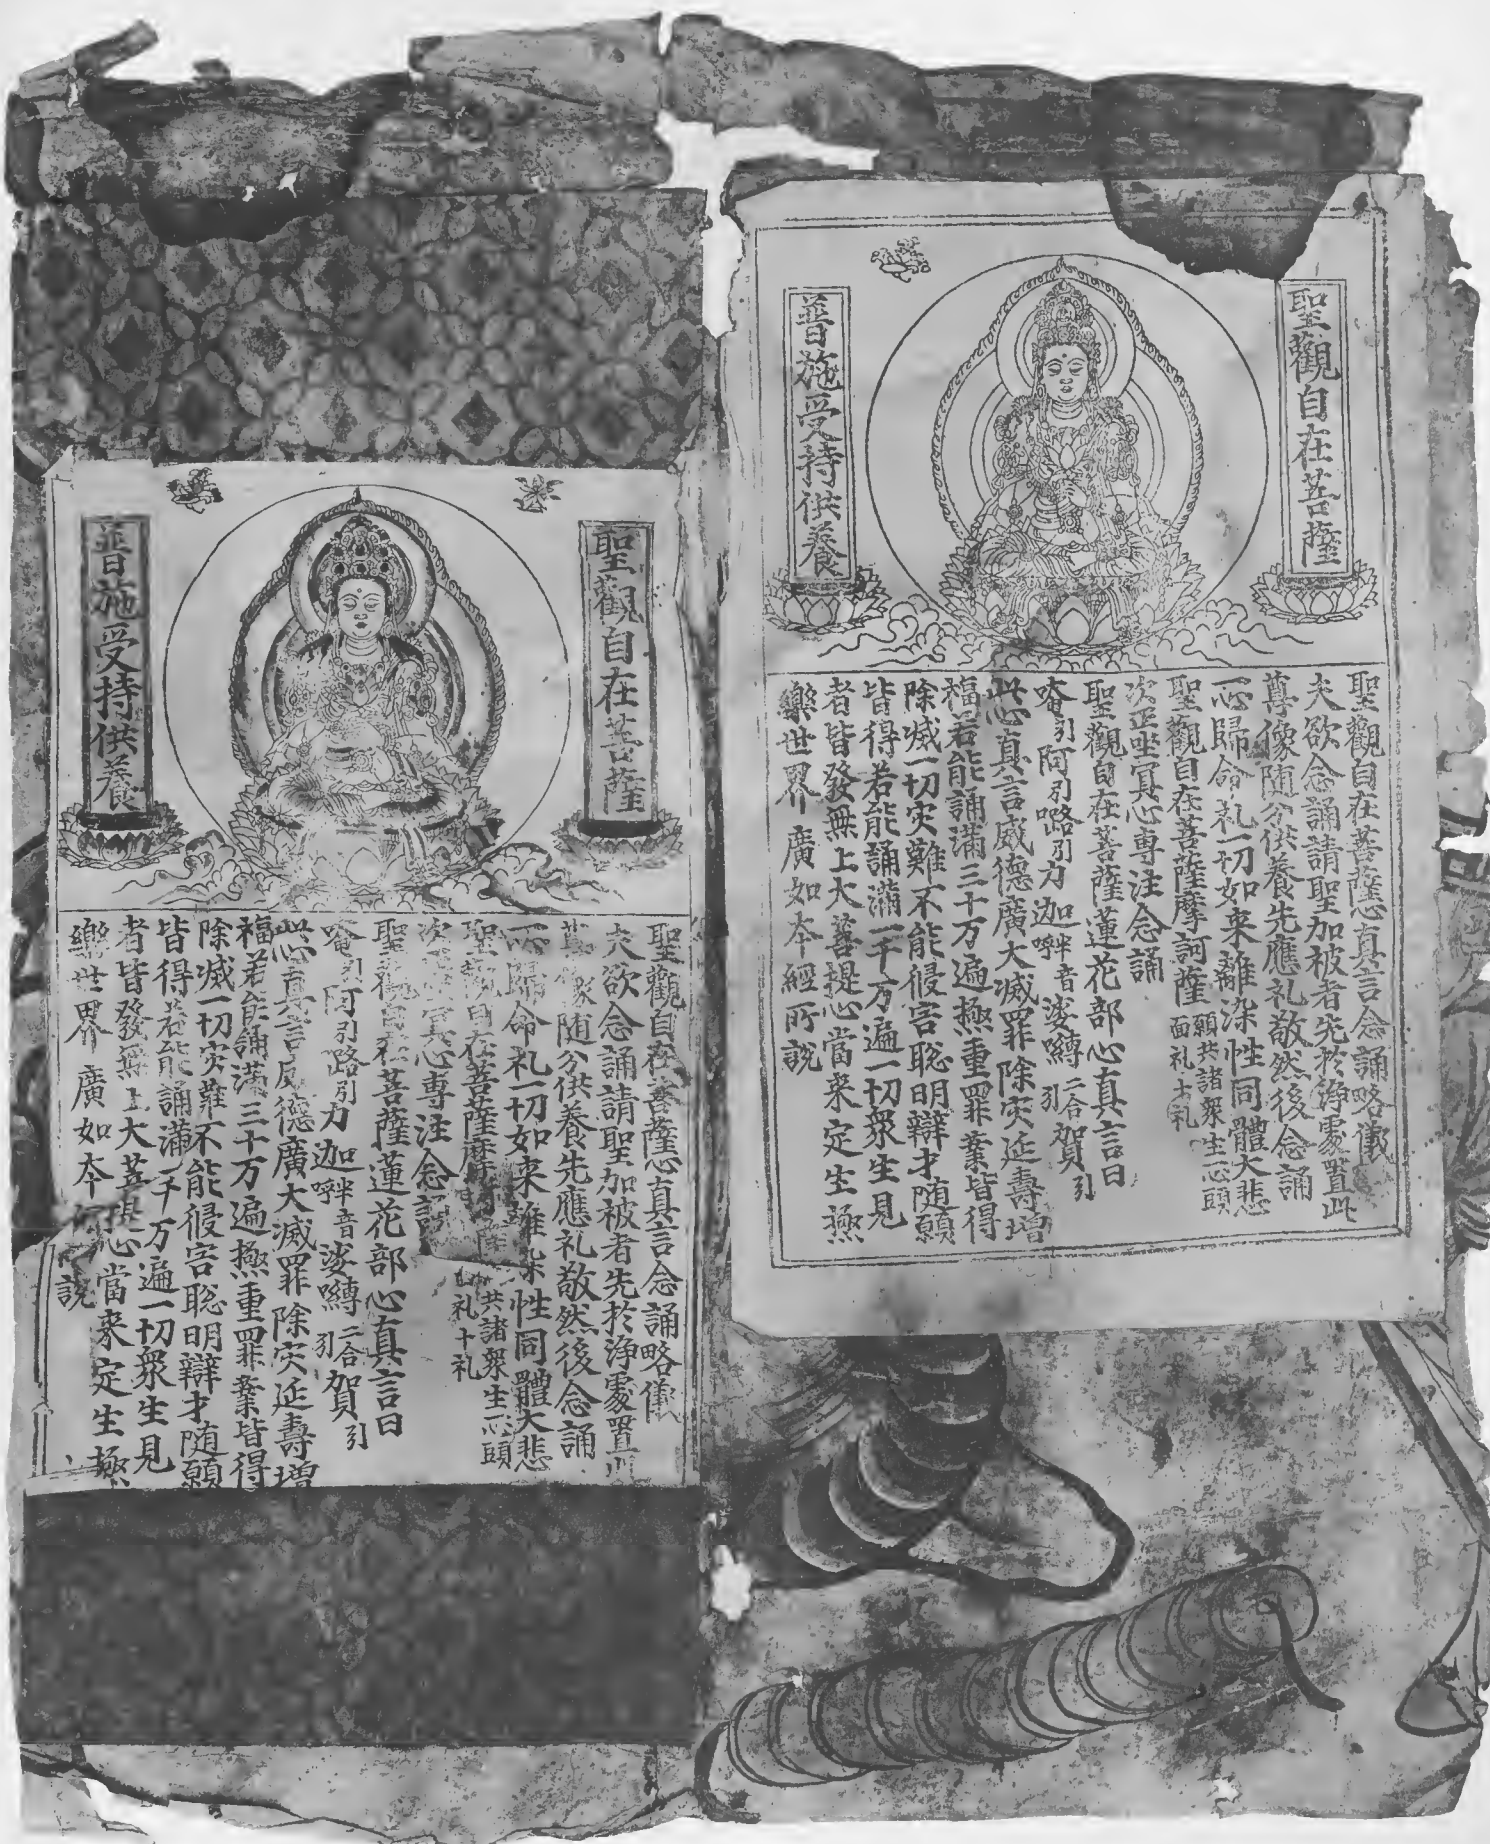 聖觀自在菩薩
普施受持供養
聖觀自在菩薩心真言念誦略儀
夫欲念誦請聖加被者先於淨處置此
尊像随分供養先應礼敬然後念誦
一心歸命礼一切如来離染性同體大悲
聖觀自在菩薩摩訶薩願共諸衆生一心頭
面礼十礼
次正坐冥心專注念誦
聖觀自在菩薩蓮花部心真言曰
唵引阿引嚕引力迦半音娑嚩二合引賀引
此心真言威德廣大滅罪除灾延壽增
福若能誦滿三十万遍極重罪業皆得
除滅一切灾難不能侵害聡明辯才随願
皆得若能誦滿一千万遍一切衆生見
者皆發無上大菩提心當来定生極
樂世界廣如本經所說
聖觀自在菩薩
普施受持供養
聖觀自在菩薩心真言念誦略儀
夫欲念誦請聖加被者先於淨處置
尊像随分供養先應礼敬然後念誦
一心歸命礼一切如来離染性同體大悲
聖觀自在菩薩摩 共諸衆生一心頭
礼十礼
次 冥心專注念誦
聖觀自在菩薩蓮花部心真言曰
唵引阿引路引力迦半音娑嚩二合引賀引
此心真言威德廣大滅罪除灾延壽增
福若能誦滿三十万遍極重罪業皆得
除滅一切灾難不能侵害聡明辯才随願
皆得若能誦滿一千万遍一切衆生見
者皆發無上大菩提心當来定生極
樂世界廣如本 說